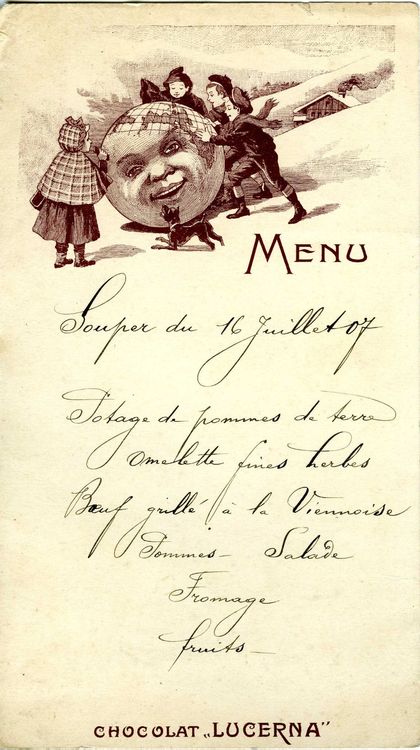 MENU
Souper du 16 Juillet 07
Potage de pommes de terre
Omelette fines herbes
Bœuf grillé à la Viennoise
Pommes - Salade
Fromage
fruits -
CHOCOLAT „LUCERNA"